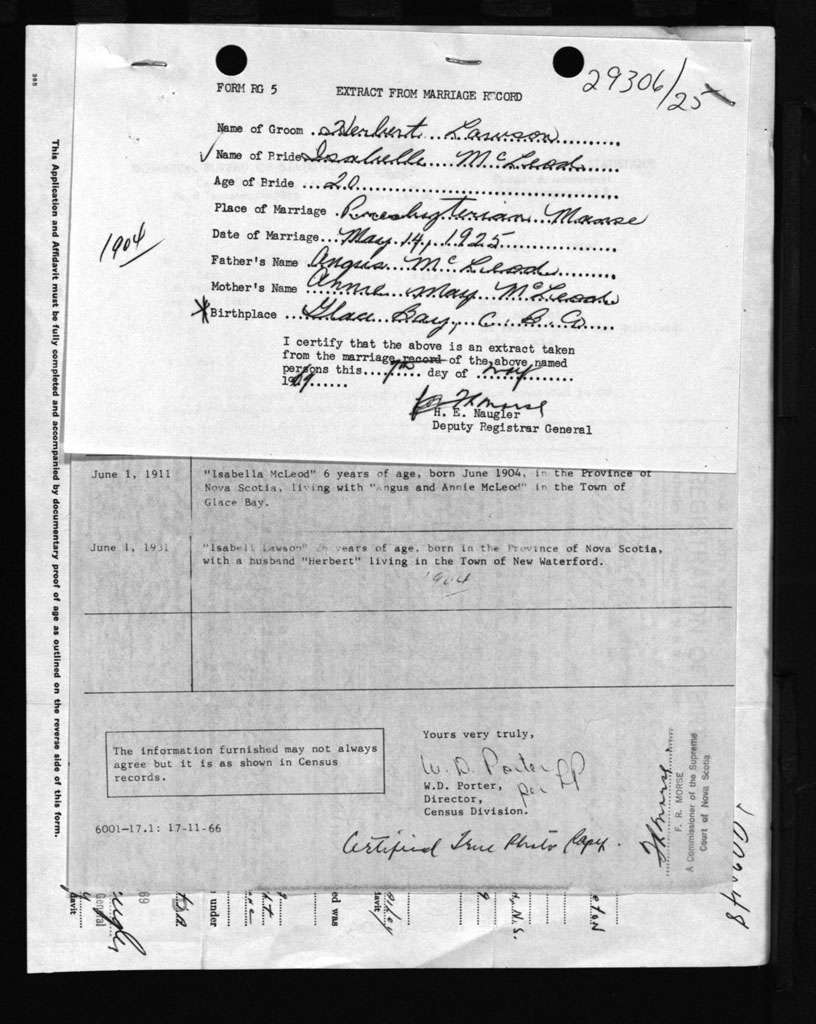 29306/25
FORM RG 5 EXTRACT FROM MARRIAGE RECORD
Name of Groom .Herbert Lawson
✓ Name of Bride Isabelle McLeod
Age of Bride ...20
Place of Marriage .Presbyterian Manse
Date of Marriage...May 14, 1925
1904
Father's Name .Angus McLeod
Mother's Name .Annie May McLeod
Birthplace ..Glace Bay, C. B. Co.
I certify that the above is an extract taken
from the marriage record of the above named
persons this....7th...day of
1969......
H. E. Naugler
Deputy Registrar General
June 1, 1911 "Isabella McLeod" 6 years of age, born June 1904, in the Province of
Nova Scotia, living with "Angus and Annie McLeod" in the Town of
Glace Bay.
June 1, 1931 "Isabell Lawson" 26 years of age, born in the Province of Nova Scotia,
with a husband "Herbert" living in the Town of New Waterford.
1904
The information furnished may not always
agree but it is as shown in Census
records.
Yours very truly,
W. D. Porter
per
W.D. Porter,
Director,
Census Division.
6001-17.1: 17-11-66
Certified True Photo Copy.
F. R. MORSE
A Commissioner of the Supreme
Court of Nova Scotia
This Application and Affidavit must be fully completed and accompanied by documentary proof of age as outlined on the reverse side of this form.
davit
General
69
under
ed was
davit,
N.S.